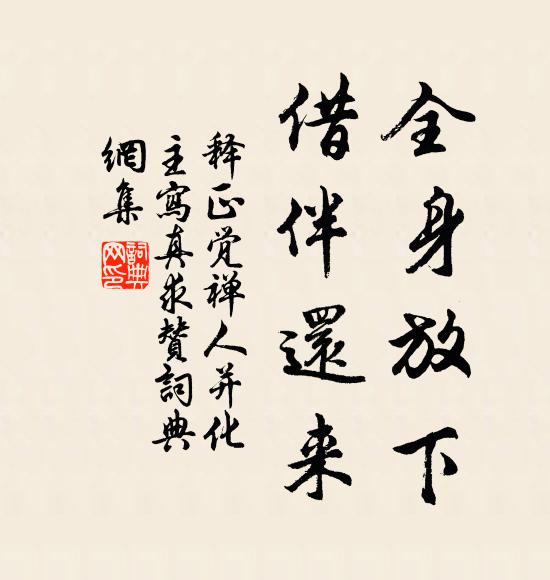 全身放下
借伴還来
释正觉禅人并化
主寫真求赞詞典
網集
詞典網印